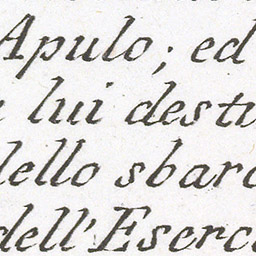 Apulo; ed
lui destu
dello sbarc
dell'Eserc